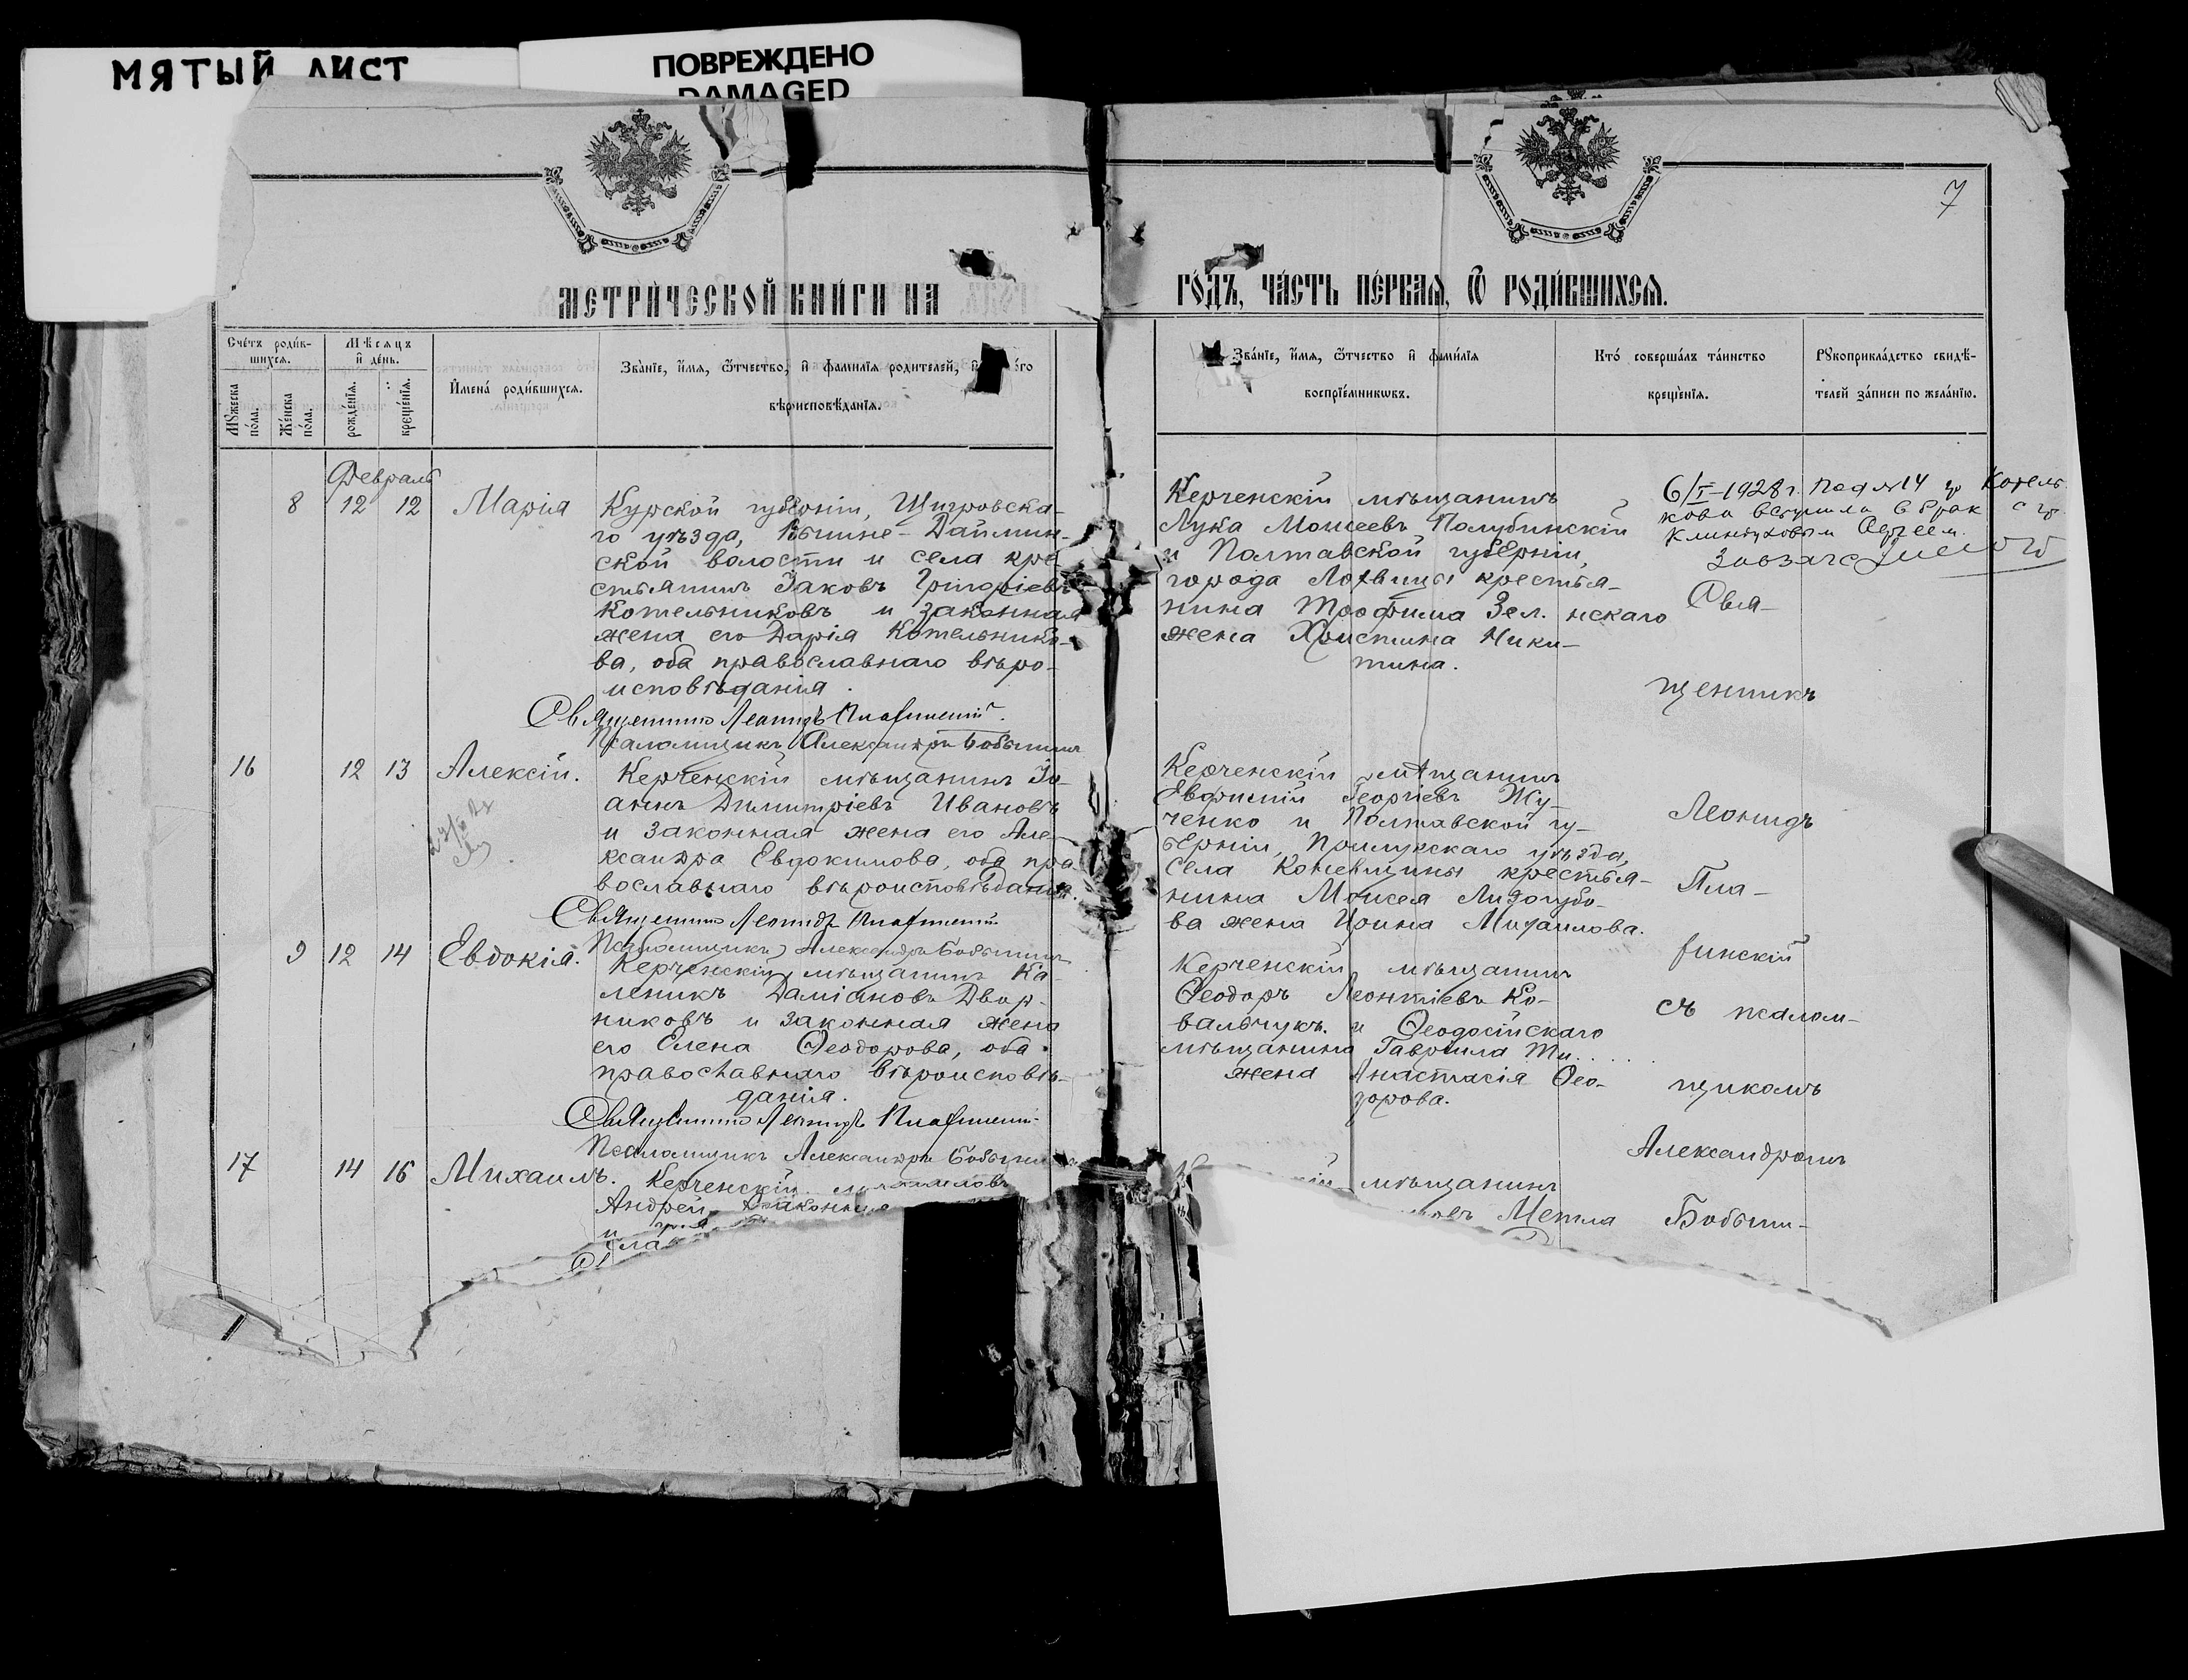 МЯТЫЙ ЛИСТ
ПОВРЕЖДЕНО
DAMAGED
7
МЕТРИ́ЧЕСКОЙ КНИ́ГИ НА
ГО́ДЪ, ЧА́СТЬ ПЕ́РВАѦ, Ѿ РОДИ́ВШИХСѦ.
Сче́тъ роди́в-
шихсѧ.
Мѣсѧцъ
и҆ де́нь.
Мꙋжеска
по́ла.
Же́нска
по́ла.
рожде́нїѧ.
креще́нїѧ.
И҆мена́ роди́вшихсѧ.
Зва́нїе, и҆́мѧ, ѻ҆́тчество, и҆ фами́лїѧ родителей, и҆
вѣроисповѣ́данїѧ.
Зва́нїе, и҆́мѧ, ѻ҆́тчество и҆ фами́лїѧ
воспрїе́мникѡвъ.
Кто̀ соверша́лъ та́инство
креще́нїѧ.
Рꙋкоприкла́дство свидѣ́-
телей за́писи по жела́нїю.
Февраль
8 12 12 Марія
Курской губерніи, Щигровска-
го уѣзда, Вышне-Даймин-
ской волости и села кре-
стьянинъ Іаковъ Григоріевъ
Котельниковъ и законная
жена его Дарія Котельнико-
ва, оба православнаго вѣро-
исповѣданія.
Священникъ Леонидъ Плафинскій.
Псаломщикъ Александръ Бобышин
Керченскій мѣщанинъ
Лука Моисеевъ Полубинскій
и Полтавской губерніи,
города Лохвицы крестья-
нина Трофима Зел. нскаго
жена Христина Ники-
тина.
6/I-1928г. под №14 гр Котель
кова вступила в брак с гр.
Сергеем.
16 12 13 Алексій.
Керченскій мѣщанинъ Іо-
аннъ Димитріевъ Ивановъ
и законная жена его Але-
ксандра Евдокимова, оба пра
вославнаго вѣроисповѣданія.
Священникъ Леонидъ Плафинскій
Псаломщикъ Александръ Бобышин
Керченскій мѣщанинъ
Евфимій Георгіевъ Жу-
ченко и Полтавской гу-
берніи, Прилукскаго уѣзда,
села крестья-
нина Моисея Лизогубо-
ва жена Ирина Михаилова.
9 12 14 Евдокія.
Керченскій мѣщанинъ Ка-
леникъ Даміановъ Двор-
никовъ и законная жена
его Елена Ѳеодорова, оба
православнаго вѣроисповѣ-
данія.
Священникъ Леонидъ Плафинскій
Псаломщикъ Александръ Бобышин
Керченскій мѣщанинъ
Ѳеодоръ Леонтіевъ Ко-
вальчукъ. и Ѳеодосійскаго
мѣщанина Гавріила Ти....
жена Анастасія Ѳео-
дорова.
17 14 16 Михаилъ.
Керченскій
Андрей
и
мѣщанинъ
Метла
Свя-
щенникъ
Леонидъ
Пла-
финскій
съ псалом-
щикомъ
Александромъ
Бобыши-